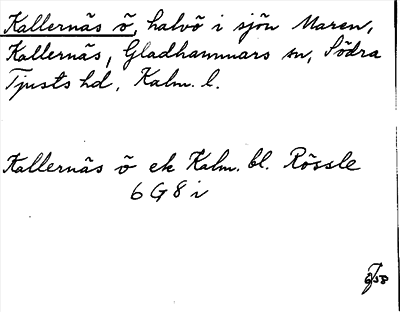 Kallernäs ö, halvö i sjön Maren,
Kallernäs, Gladhammars sn, Södra
Tjusts hd, Kalm. l.
Kallernäs ö ek Kalm. bl. Rössle
6 G 8 i